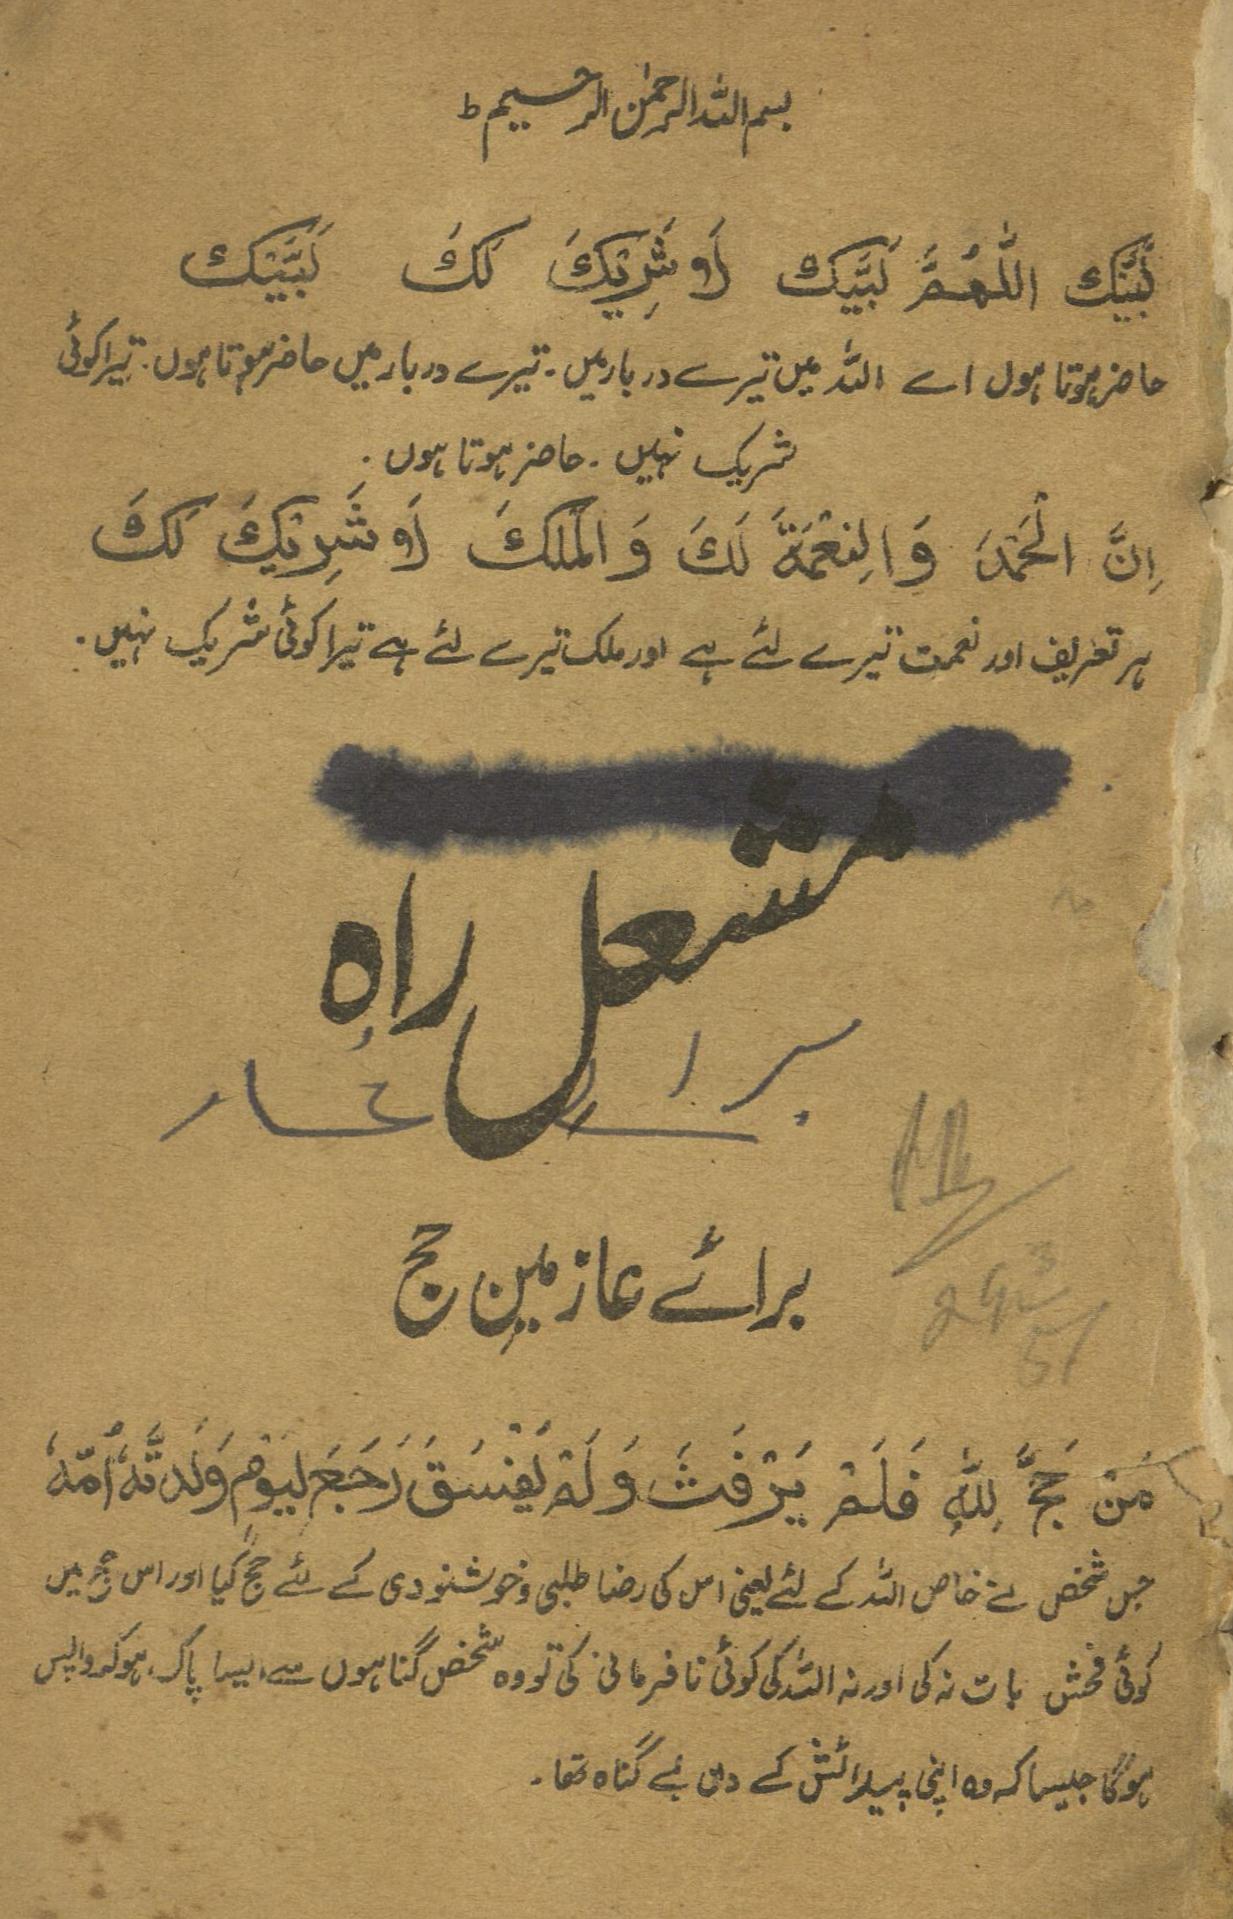 بسم اللہ الرحمٰن الرحیم ط
لَبَّیْک اللّٰھُمَّ لَبَّیْک لَا شَرِیْکَ لَکَ لَبَّیْک
حاضر ہوتا ہوں اے اللہ میں تیرے دربار میں ۔ تیرے دربار میں حاضر ہوتا ہوں ۔ تیرا کوئی
شریک نہیں ۔ حاضر ہوتا ہوں ۔
اِنَّ الْحَمْدَ وَالنِعْمَۃَ لَکَ وَ الْمُلْکَ لَا شَرِیْکَ لَکَ
ہر تعریف اور نعمت تیرے لئے ہے اور ملک تیرے لئے ہے تیرا کوئی شریک نہیں ۔
مشعل راہ
برائے
برائے عازمین حج
مَنْ حَجَّ لِلّٰہِ فَلَمْ یَرْفَثَ وَ لَمْ یَفْسُقَ رَجَعَ لیَوْمِ وَلَدَتَّہٗ اُمّہٗ
جس شخص نے خاص اللہ کے لئے یعنی اس کی رضا طلبی و خوشنودی کے لئے حج کیا اور اس حج میں
کوئی فحش بات نہ کی اور نہ اللہ کی کوئی نافرمانی کی تو وہ شخص گناہوں سے ایسا پاک ہوکر واپس
ہوگا جیسا کہ وہ اپنی پیدائش کے دن بے گناہ تھا ۔